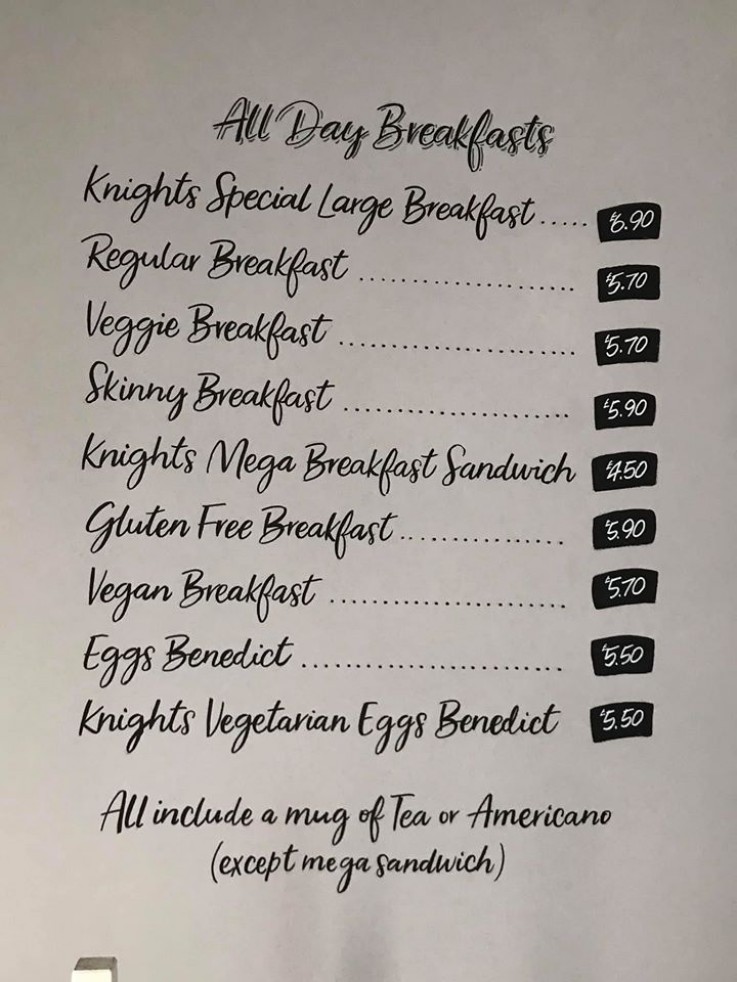 All Day Breakfasts
Knights Special Large Breakfast..... £6.90
Regular Breakfast ........................ £5.70
Veggie Breakfast .......................... £5.70
Skinny Breakfast ......................... £5.90
Knights Mega Breakfast Sandwich £4.50
Gluten Free Breakfast.................. £5.90
Vegan Breakfast .......................... £5.70
Eggs Benedict ............................. £5.50
Knights Vegetarian Eggs Benedict £5.50
All include a mug of Tea or Americano
(except mega sandwich)